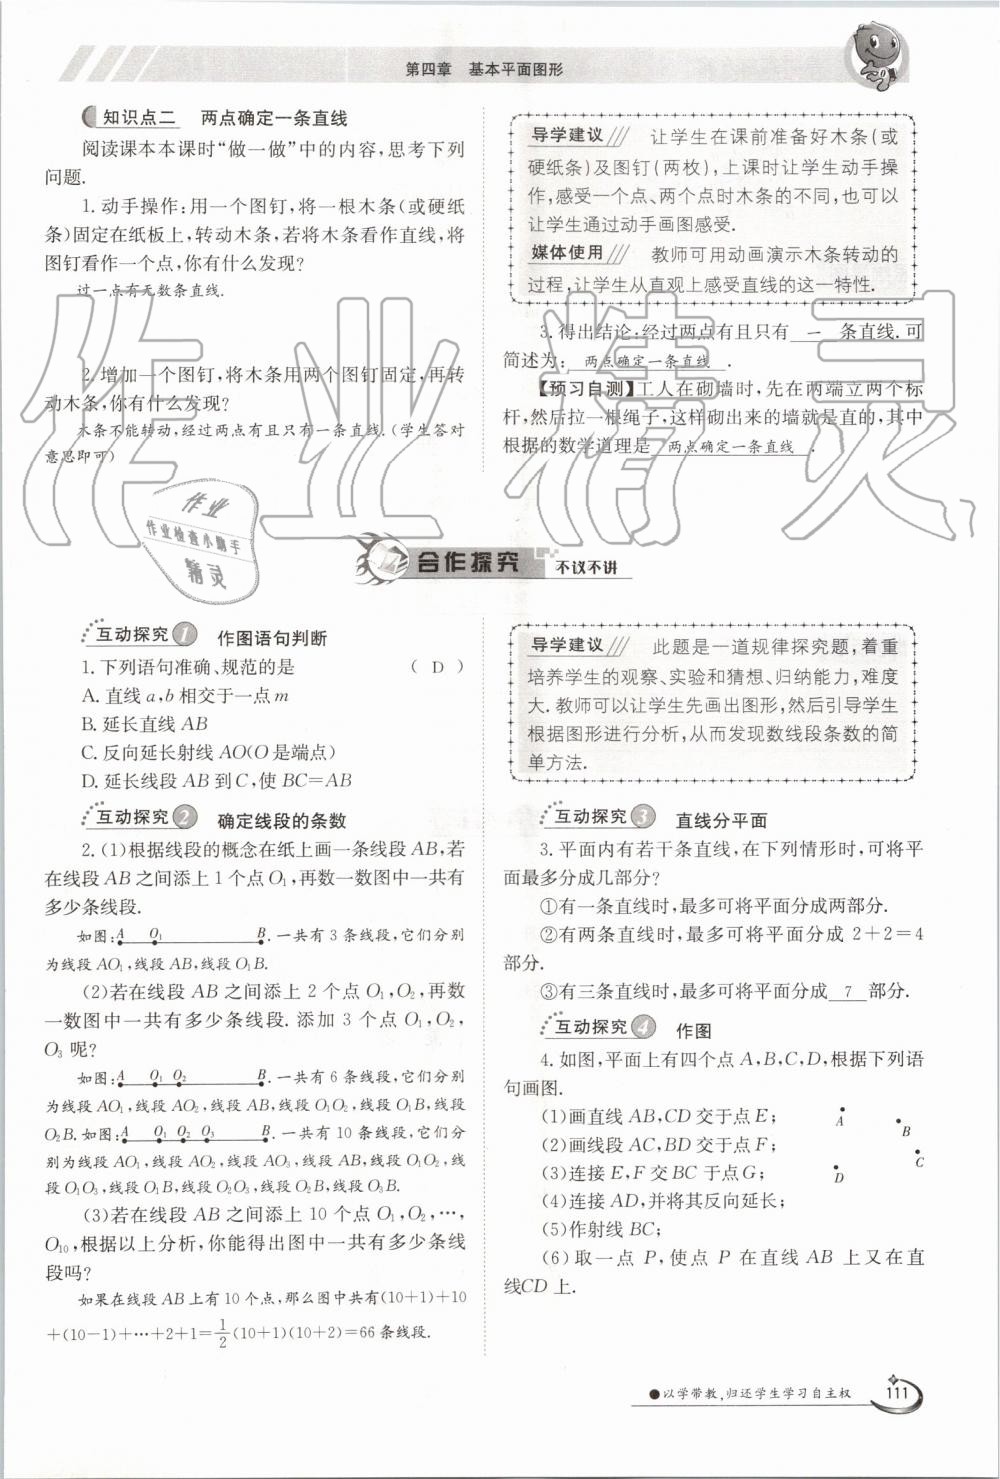 第四章　基本平面图形
知识点二　两点确定一条直线
阅读课本本课时“做一做”中的内容,思考下列
问题.
1. 动手操作:用一个图钉,将一根木条(或硬纸
条)固定在纸板上,转动木条,若将木条看作直线,将
图钉看作一个点,你有什么发现?
过一点有无数条直线.
2. 增加一个图钉,将木条用两个图钉固定,再转
动木条,你有什么发现?
木条不能转动,经过两点有且只有一条直线.(学生答对
意思即可)
导学建议 让学生在课前准备好木条(或
硬纸条)及图钉(两枚),上课时让学生动手操
作,感受一个点、两个点时木条的不同,也可以
让学生通过动手画图感受.
媒体使用 教师可用动画演示木条转动的
过程,让学生从直观上感受直线的这一特性.
3. 得出结论:经过两点有且只有 一 条直线. 可
简述为: 两点确定一条直线 .
【预习自测】工人在砌墙时,先在两端立两个标
杆,然后拉一根绳子,这样砌出来的墙就是直的,其中
根据的数学道理是 两点确定一条直线 .
作业精灵
作业
作业检查小助手
精灵
合作探究 不议不讲
互动探究1 作图语句判断
1. 下列语句准确、规范的是 ( D )
A. 直线 a,b 相交于一点 m
B. 延长直线 AB
C. 反向延长射线 AO(O 是端点)
D. 延长线段 AB 到 C,使 BC=AB
互动探究2 确定线段的条数
2. (1)根据线段的概念在纸上画一条线段 AB,若
在线段 AB 之间添上 1 个点 O₁,再数一数图中一共有
多少条线段.
如图: A O₁ B . 一共有 3 条线段,它们分别
为线段 AO₁,线段 AB,线段 O₁B.
(2)若在线段 AB 之间添上 2 个点 O₁,O₂,再数
一数图中一共有多少条线段. 添加 3 个点 O₁,O₂,
O₃ 呢?
如图: A O₁ O₂ B . 一共有 6 条线段,它们分别
为线段 AO₁,线段 AO₂,线段 AB,线段 O₁O₂,线段 O₁B,线段
O₂B. 如图: A O₁ O₂ O₃ B . 一共有 10 条线段,它们分
别为线段 AO₁,线段 AO₂,线段 AO₃,线段 AB,线段 O₁O₂,线
段 O₁O₃,线段 O₁B,线段 O₂O₃,线段 O₂B,线段 O₃B.
(3)若在线段 AB 之间添上 10 个点 O₁,O₂,…,
O₁₀,根据以上分析,你能得出图中一共有多少条线
段吗?
如果在线段 AB 上有 10 个点,那么图中共有(10+1)+10
+(10-1)+…+2+1=1/2(10+1)(10+2)=66 条线段.
导学建议 此题是一道规律探究题,着重
培养学生的观察、实验和猜想、归纳能力,难度
大. 教师可以让学生先画出图形,然后引导学生
根据图形进行分析,从而发现数线段条数的简
单方法.
互动探究3 直线分平面
3. 平面内有若干条直线,在下列情形时,可将平
面最多分成几部分?
①有一条直线时,最多可将平面分成两部分.
②有两条直线时,最多可将平面分成 2+2=4
部分.
③有三条直线时,最多可将平面分成 7 部分.
互动探究4 作图
4. 如图,平面上有四个点 A,B,C,D,根据下列语
句画图.
(1)画直线 AB,CD 交于点 E;
(2)画线段 AC,BD 交于点 F;
(3)连接 E,F 交 BC 于点 G;
(4)连接 AD,并将其反向延长;
(5)作射线 BC;
(6)取一点 P,使点 P 在直线 AB 上又在直
线CD 上.
A
B
C
D
●以学带教,归还学生学习自主权
111